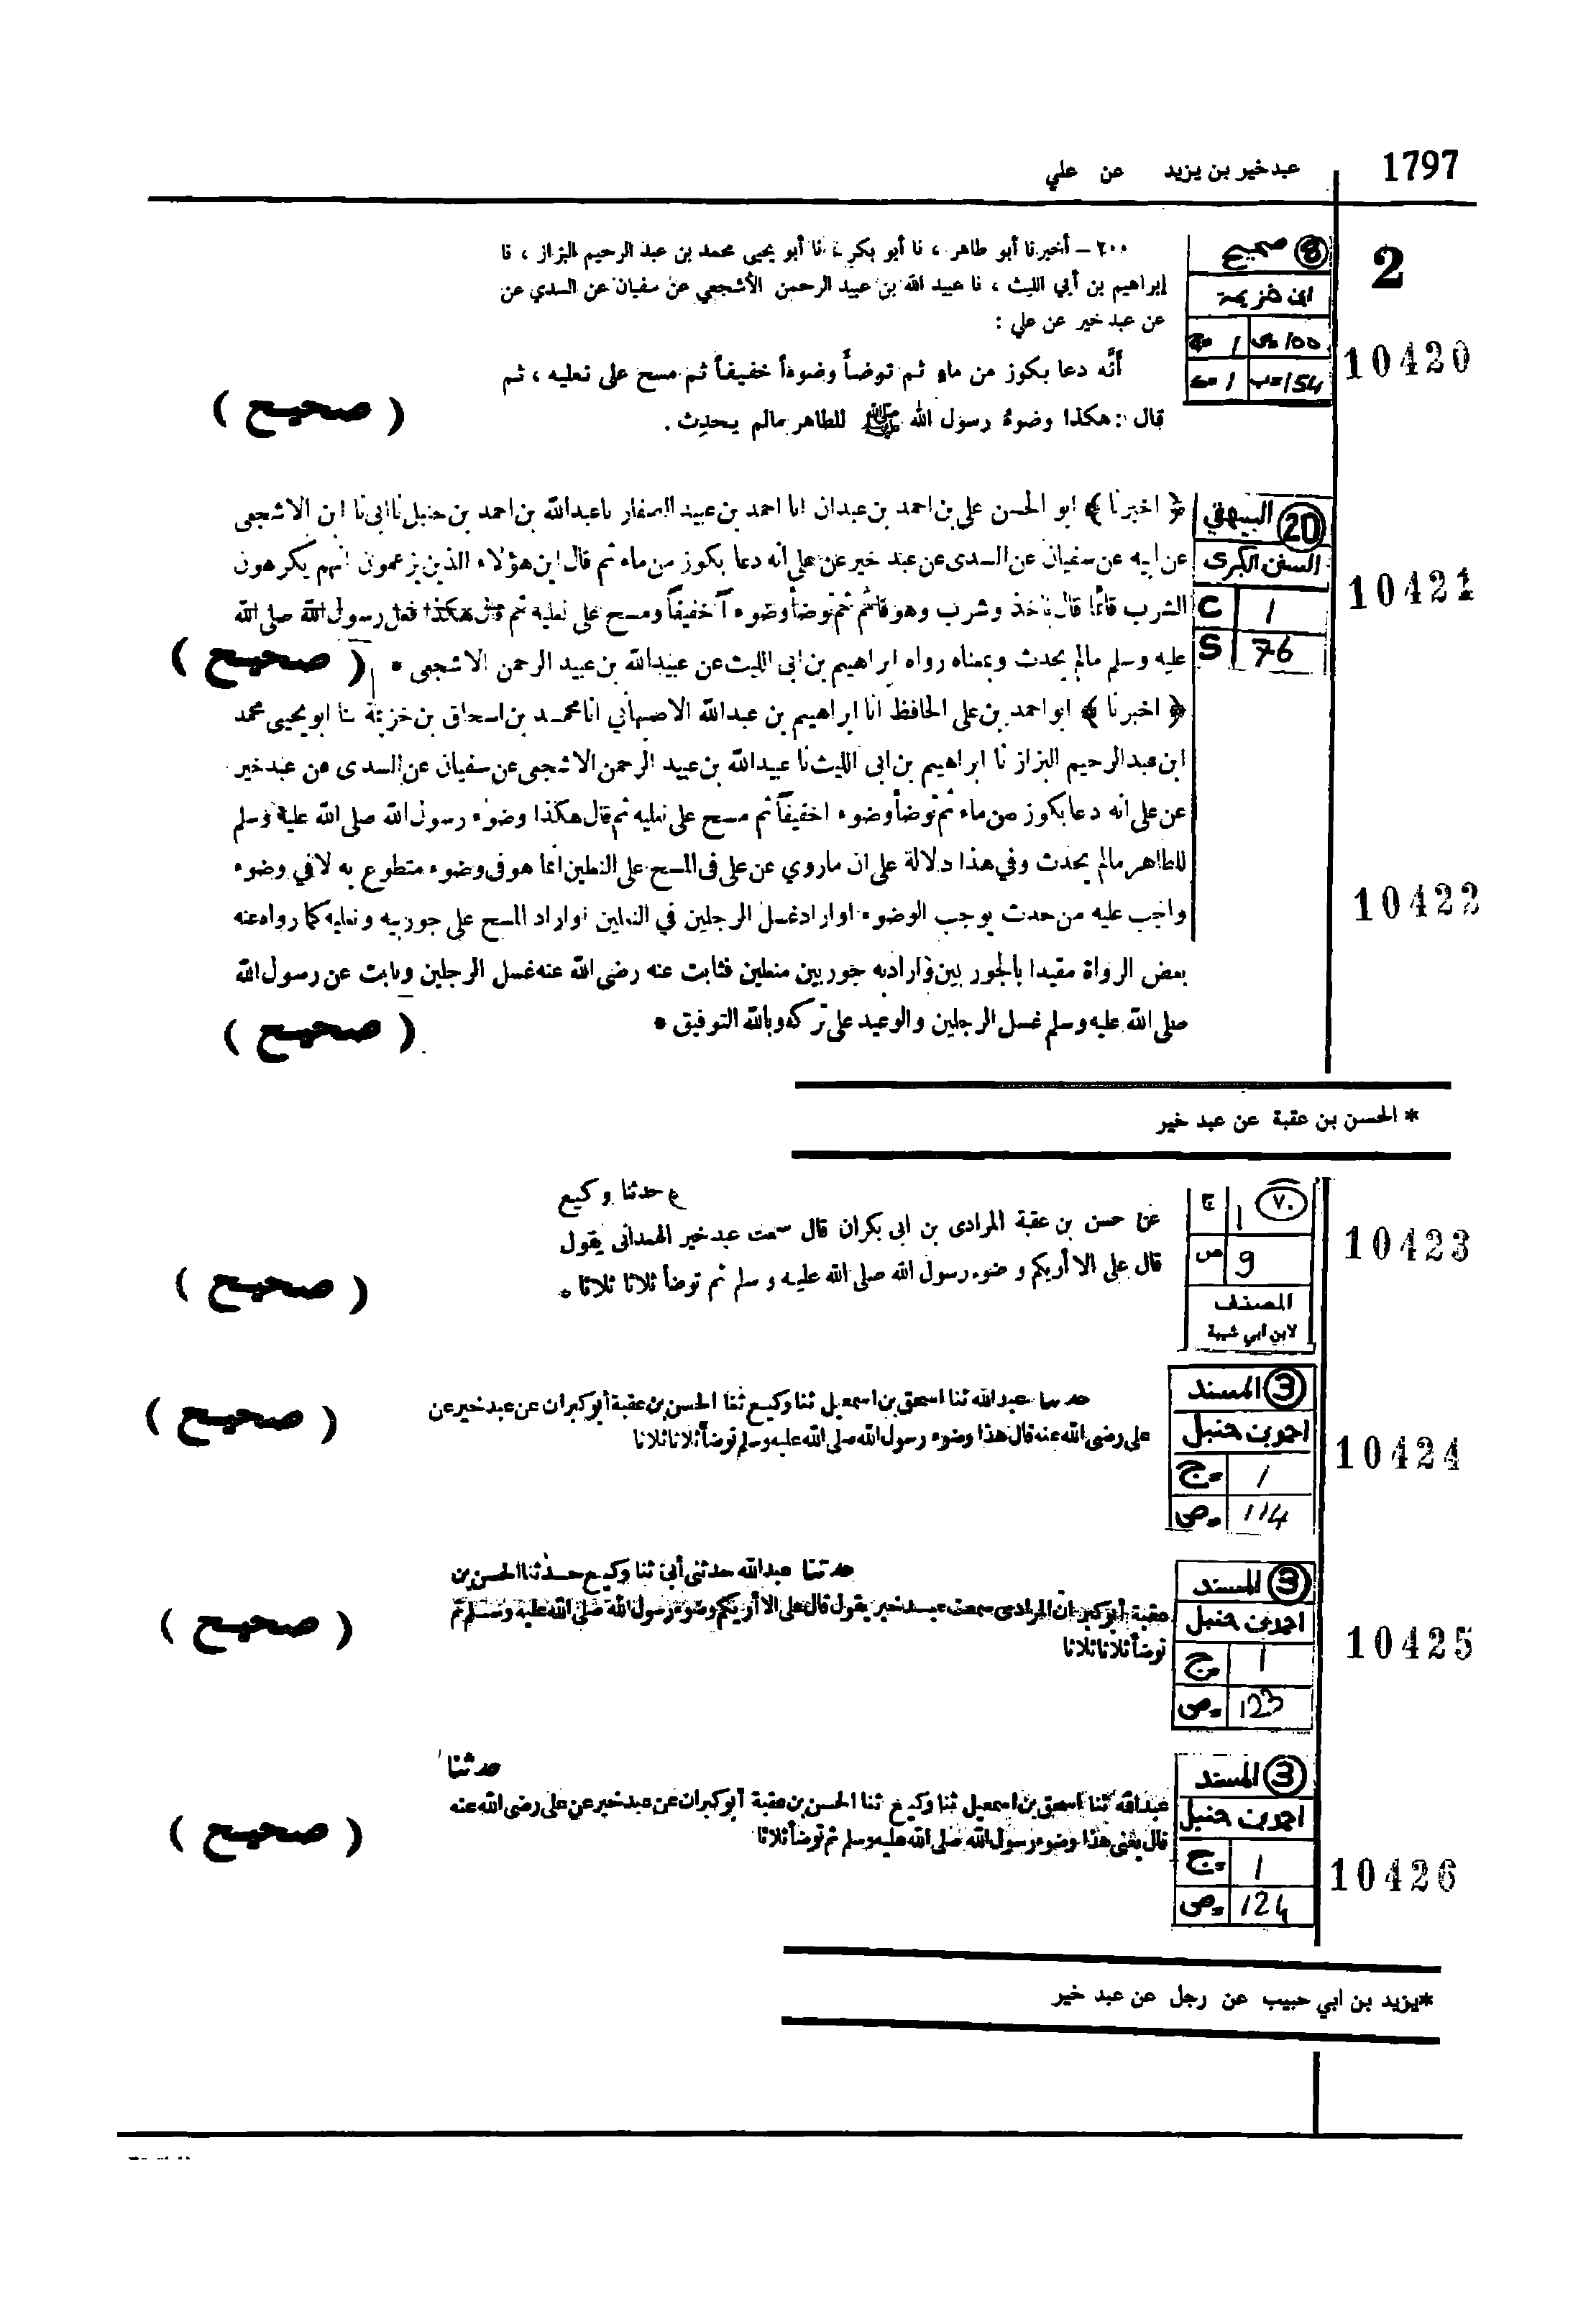 1797
عبدخير بن يزيد عن علي
2
8 صحيح
ابن خزيمة
ص 100 ج 1
10420
٢٠٠ – أخبرنا أبو طاهر ، نا أبو بكر ، نا أبو يحيى محمد بن عبد الرحيم البزاز ، نا
إبراهيم بن أبي الليث ، نا عبيد الله بن عبيد الرحمن الأشجعي عن سفيان عن السدي عن
عن عبد خير عن علي :
أنَّه دعا بكوز من ماء ثم توضأ وضوءاً خفيفاً ثم مسح على نعليه ، ثم
قال : هكذا وضوءُ رسول الله ﷺ للطاهر مالم يحدِث .
( صحيح )
20 البيهقي
السنن الكبرى
C 1
S 76
10421
﴿ اخبرنا ﴾ ابو الحسن على بن احمد بن عبدان انا احمد بن عبيد الصفار نا عبدالله بن احمد بن حنبل نا ابى نا ابن الاشجعى
عن ابيه عن سفيان عن السدى عن عبد خير عن على انه دعا بكوز من ماء ثم قال اين هؤلاء الذين يزعمون انهم يكرهون
الشرب قائما قال فاخذ وشرب وهو قائم ثم توضأ وضوءاً خفيفاً ومسح على نعليه ثم قال هكذا فعل رسول الله صلى الله
عليه وسلم مالم يحدث وبمعناه رواه ابراهيم بن ابى الليث عن عبيدالله بن عبيد الرحمن الاشجعى *
( صحيح )
﴿ اخبرنا ﴾ ابو احمد بن على الحافظ انا ابراهيم بن عبدالله الاصبهاني انا محمد بن اسحاق بن خزيمة ثنا ابو يحيى محمد
ابن عبد الرحيم البزاز نا ابراهيم بن ابى الليث نا عبيدالله بن عبيد الرحمن الاشجعى عن سفيان عن السدى عن عبد خير
عن على انه دعا بكوز من ماء ثم توضأ وضوء اخفيفاً ثم مسح على نعليه ثم قال هكذا وضوء رسول الله صلى الله عليه وسلم
للطاهر مالم يحدث وفي هذا دلالة على ان ماروي عن على فى المسح على النعلين انما هو فى وضوء متطوع به لا في وضوء
10422
واجب عليه من حدث يوجب الوضوء او اراد غسل الرجلين في النعلين او اراد المسح على جوربيه ونعليه كما رواه عنه
بعض الرواة مقيدا بالجوربين واراد به جوربين منعلين فثابت عنه رضى الله عنه غسل الرجلين وثابت عن رسول الله
صلى الله عليه وسلم غسل الرجلين والوعيد على تركه وبالله التوفيق *
( صحيح )
* الحسن بن عقبة عن عبد خير
٧٠ 1 ج
9 ص
المصنف
لابن ابي شيبة
10423
حدثنا وكيع
عن حسن بن عقبة المرادى بن ابى بكران قال سمعت عبد خير الهمدانى يقول
قال على الا أريكم وضوء رسول الله صلى الله عليه وسلم ثم توضأ ثلاثا ثلاثا *
( صحيح )
3 المسند
احمد بن حنبل
1 ج
114 ص
10424
عبدالله ثنا اسحق بن اسمعيل ثنا وكيع ثنا الحسن بن عقبة أبو كبران عن عبد خير عن
على رضى الله عنه قال هذا وضوء رسول الله صلى الله عليه وسلم توضأ ثلاثا ثلاثا
( صحيح )
3 المسند
احمد بن حنبل
1 ج
123 ص
10425
حدثنا عبدالله حدثنى أبى ثنا وكيع حدثنا الحسن بن
عقبة أبو كبران المرادى سمعت عبد خير يقول قال على الا أريكم وضوء رسول الله صلى الله عليه وسلم ثم
توضأ ثلاثا ثلاثا
( صحيح )
3 المسند
احمد بن حنبل
1 ج
124 ص
10426
حدثنا
عبدالله ثنا اسحق بن اسمعيل ثنا وكيع ثنا الحسن بن عقبة أبو كبران عن عبد خير عن على رضى الله عنه
قال يعنى هذا وضوء رسول الله صلى الله عليه وسلم ثم توضأ ثلاثا
( صحيح )
*يزيد بن ابي حبيب عن رجل عن عبد خير